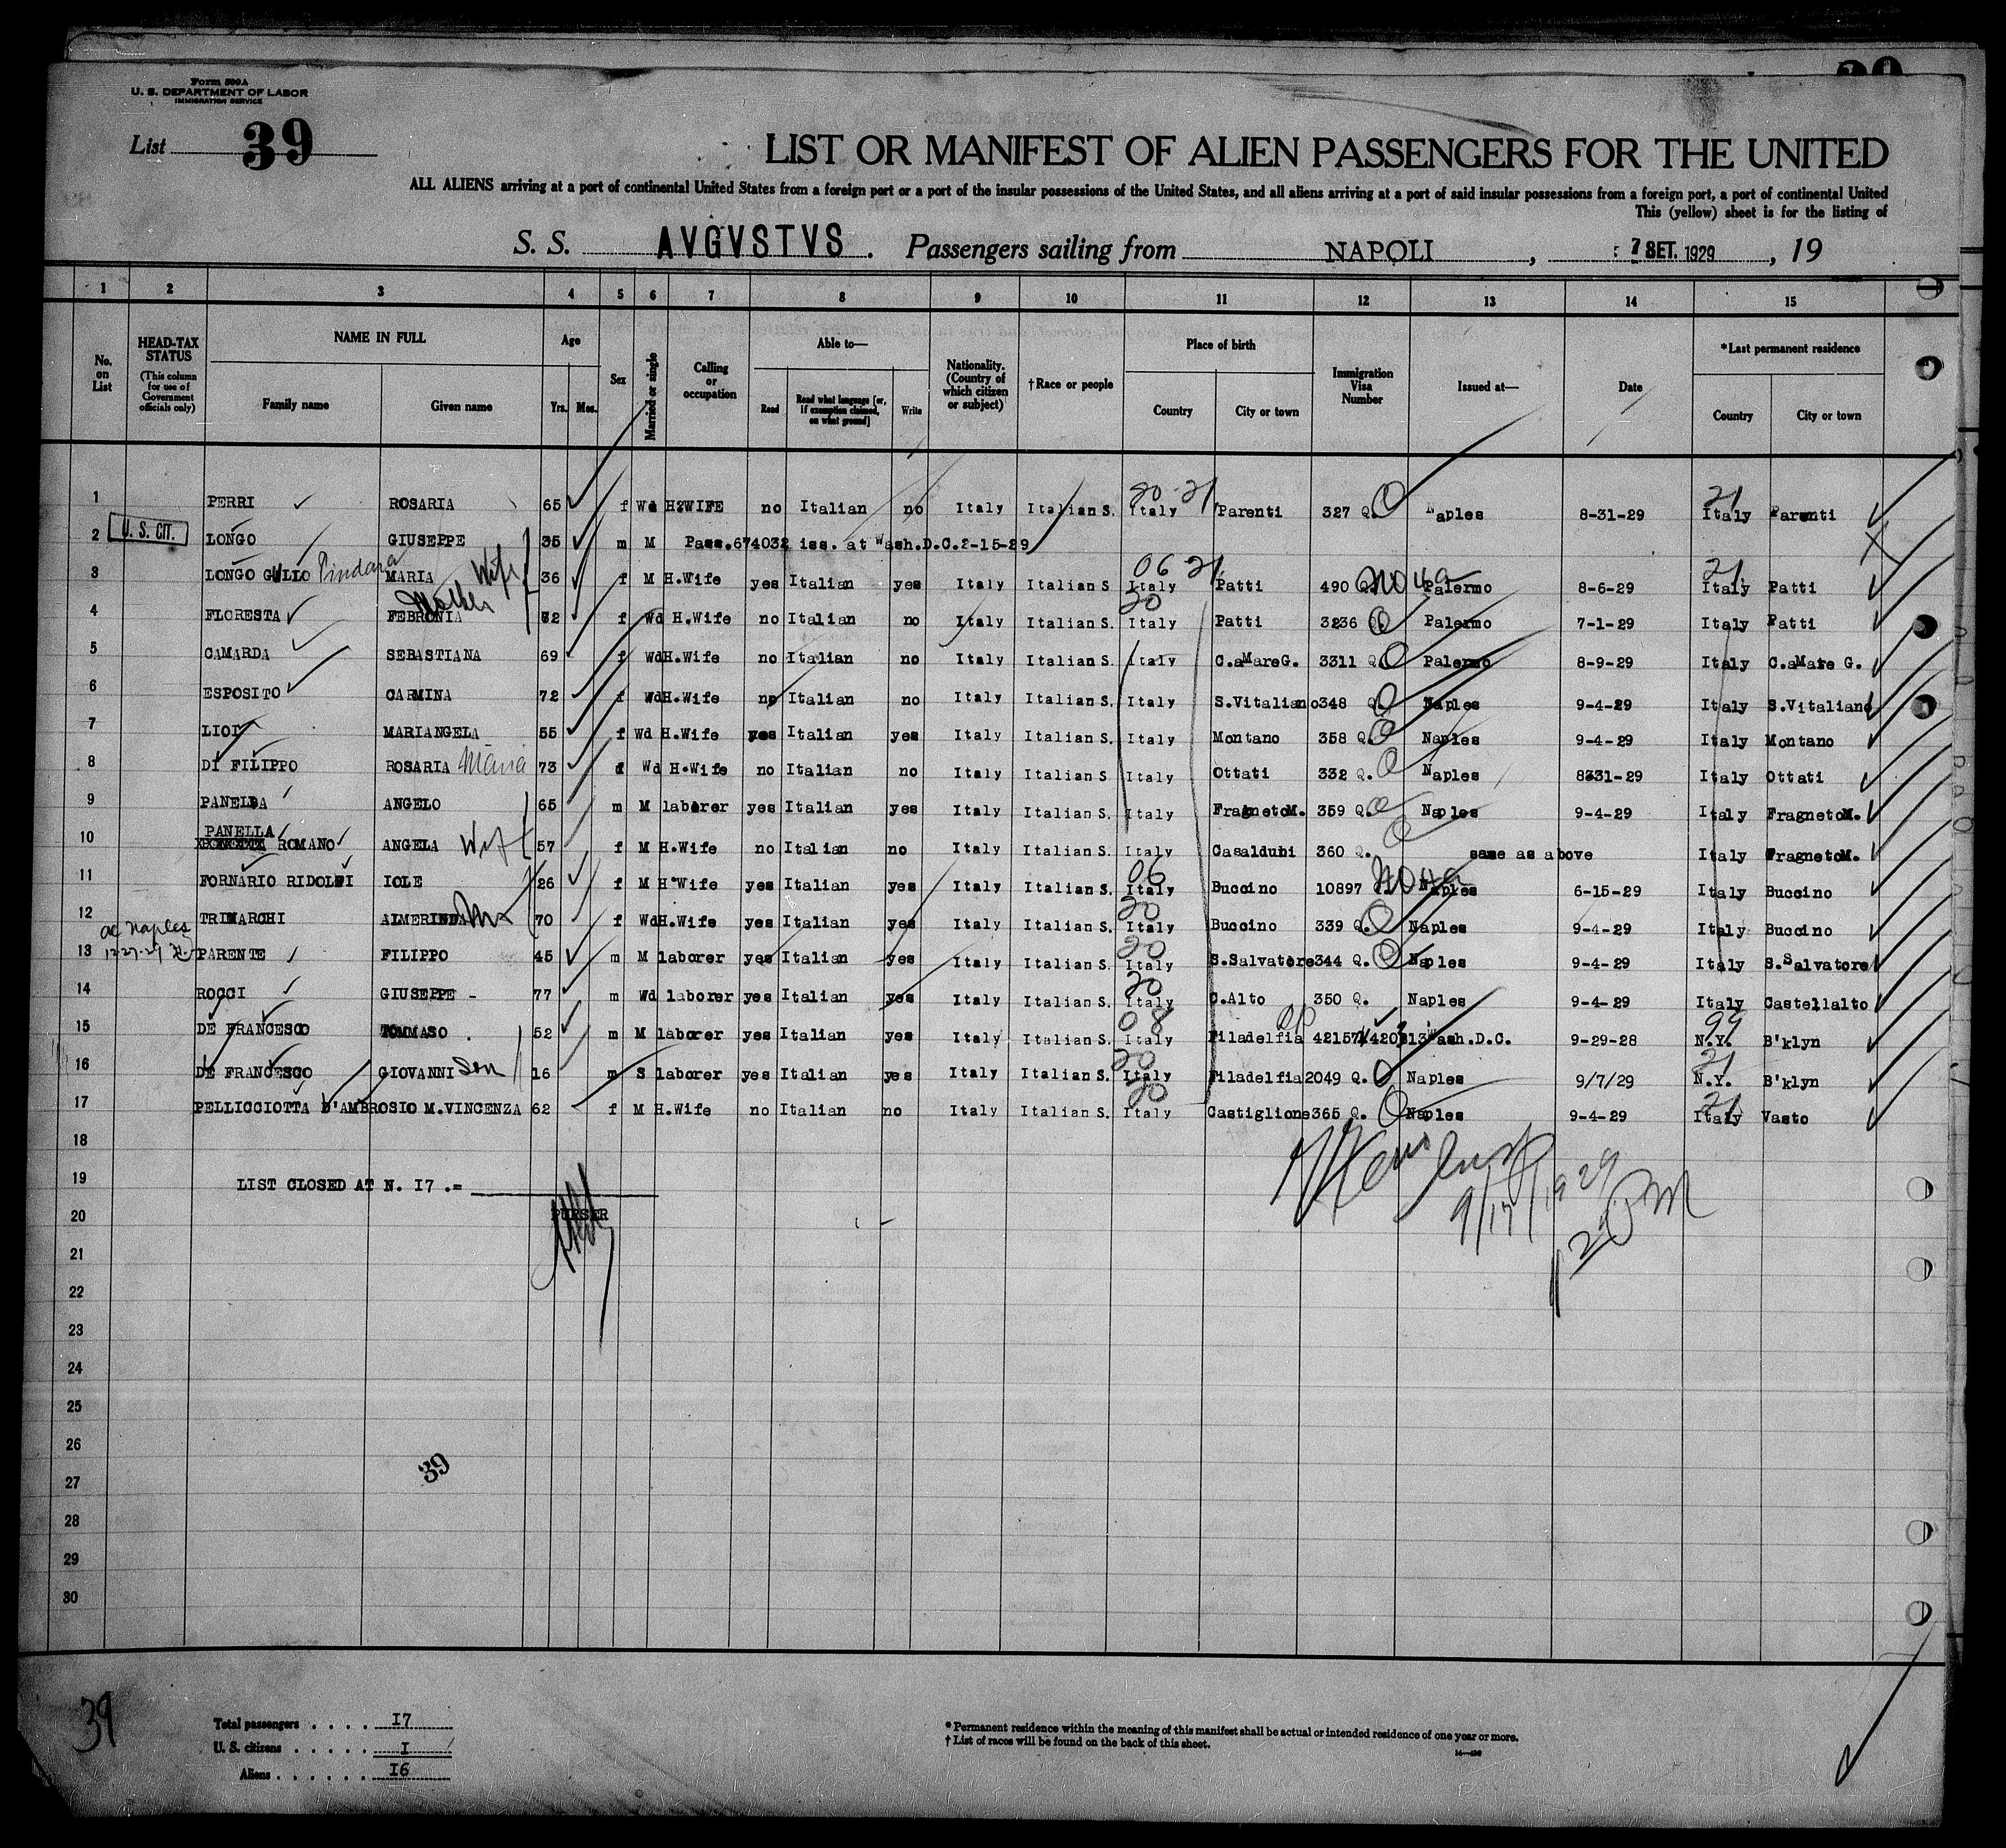 Form 500A
U. S. DEPARTMENT OF LABOR
IMMIGRATION SERVICE
List 39
LIST OR MANIFEST OF ALIEN PASSENGERS FOR THE UNITED
ALL ALIENS arriving at a port of continental United States from a foreign port or a port of the insular possessions of the United States, and all aliens arriving at a port of said insular possessions from a foreign port, a port of continental United
This (yellow) sheet is for the listing of
S. S. AVGVSTVS. Passengers sailing from NAPOLI, 7 SET. 1929, 19
1 2 3 4 5 6 7 8 9 10 11 12 13 14 15
No. on List
HEAD-TAX STATUS (This column for use of Government officials only)
NAME IN FULL
Family name Given name
Age
Yrs. Mos.
Sex
Married or single
Calling or occupation
Able to—
Read Read what language [or, if exemption claimed, on what ground] Write
Nationality. (Country of which citizen or subject)
†Race or people
Place of birth
Country City or town
Immigration Visa Number
Issued at—
Date
*Last permanent residence
Country City or town
1 PERRI ROSARIA 65 f Wd H?WIFE no Italian no Italy Italian S. 20-21 Italy Parenti 327 Q. Naples 8-31-29 21 Italy Parenti
2 U. S. CIT. LONGO GIUSEPPE 35 m M Pass.674032 iss. at Wash.D.C.2-15-29
3 LONGO GULLO Pindara MARIA Wife 36 f M H.Wife yes Italian yes Italy Italian S. 06 21 Italy Patti 490 Q. Palermo 8-6-29 21 Italy Patti
4 FLORESTA FEBRONIA Mother 72 f Wd H.Wife no Italian no Italy Italian S. 20 Italy Patti 3236 Q. Palermo 7-1-29 Italy Patti
5 CAMARDA SEBASTIANA 69 f Wd H.Wife no Italian no Italy Italian S. Italy C.aMareG. 3311 Q. Palermo 8-9-29 Italy C.aMare G.
6 ESPOSITO CARMINA 72 f Wd H.Wife no Italian no Italy Italian S. Italy S.Vitaliano 348 Q. Naples 9-4-29 Italy S.Vitaliano
7 LIOI MARIANGELA 55 f Wd H.Wife yes Italian yes Italy Italian S. Italy Montano 358 Q. Naples 9-4-29 Italy Montano
8 DI FILIPPO ROSARIA Maria 73 f Wd H.Wife no Italian no Italy Italian S. Italy Ottati 332 Q. Naples 8331-29 Italy Ottati
9 PANELLA ANGELO 65 m M laborer yes Italian yes Italy Italian S. Italy FragnetoM. 359 Q. Naples 9-4-29 Italy FragnetoM.
10 PANELLA ROMANO ANGELA Wife 57 f M H.Wife no Italian no Italy Italian S. Italy Casalduni 360 Q. same as above Italy FragnetoM.
11 FORNARIO RIDOLFI IOLE 26 f M H.Wife yes Italian yes Italy Italian S. 06 Italy Buccino 10897 Naples 6-15-29 Italy Buccino
12 TRIMARCHI ALMERINDA 70 f Wd H.Wife yes Italian yes Italy Italian S. 20 Italy Buccino 339 Q. Naples 9-4-29 Italy Buccino
13 PARENTE FILIPPO 45 m M laborer yes Italian yes Italy Italian S. 20 Italy S.Salvatore 344 Q. Naples 9-4-29 Italy S.Salvatore
14 ROCCI GIUSEPPE 77 m Wd laborer yes Italian yes Italy Italian S. 20 Italy C.Alto 350 Q. Naples 9-4-29 Italy Castellalto
15 DE FRANCESCO TOMMASO 52 m M laborer yes Italian yes Italy Italian S. 08 Italy Filadelfia Wash.D.C. 9-29-28 99 N.Y. B'klyn
16 DE FRANCESCO GIOVANNI Son 16 m S laborer yes Italian yes Italy Italian S. 20 Italy Filadelfia 2049 Q. Naples 9/7/29 21 N.Y. B'klyn
17 PELLICCIOTTA D'AMBROSIO M.VINCENZA 62 f M H.Wife no Italian no Italy Italian S. 20 Italy Castiglione 365 Q. Naples 9-4-29 21 Italy Vasto
18
19 LIST CLOSED AT N. I7 .=
20 PURSER
9/17/1929
21
22
23
24
25
26
27
28
29
30
39
39
Total passengers . . . . I7
U. S. citizens . . . . . I
Aliens . . . . . . I6
* Permanent residence within the meaning of this manifest shall be actual or intended residence of one year or more.
† List of races will be found on the back of this sheet.